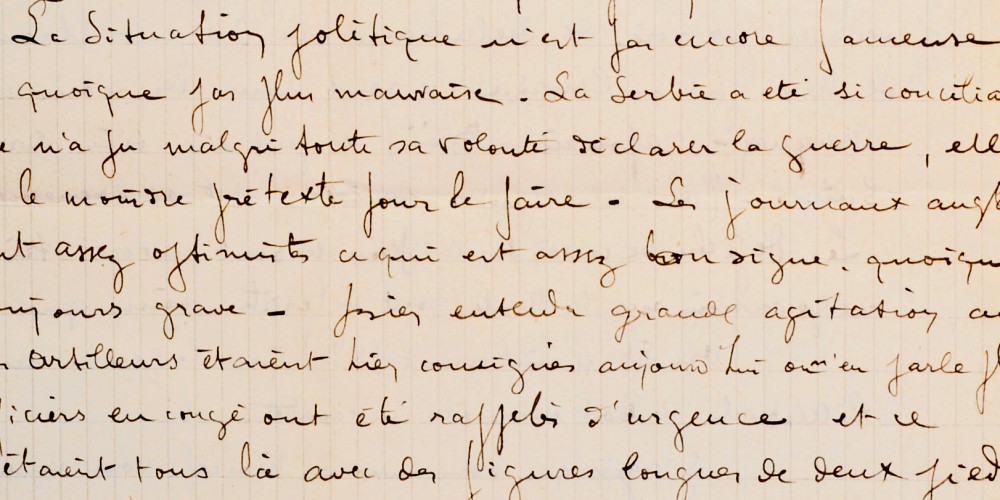 La Situation politique n'est pas encore fameuse
quoique pas plus mauvaise. La Serbie a été si concilia
e n'a pu malgré toute sa volonté déclarer la guerre, ell
le moindre prétexte pour le faire - Les journaux angl
nt assez optimistes ce qui est assez bon signe. quoiqu
oujours grave - entendu grande agitation au
artilleurs étaient hier consignés aujourd'hui on n'en parle pl
ficiers en congé ont été rappelés d'urgence et ce
étaient tous là avec des figures longues de deux pied